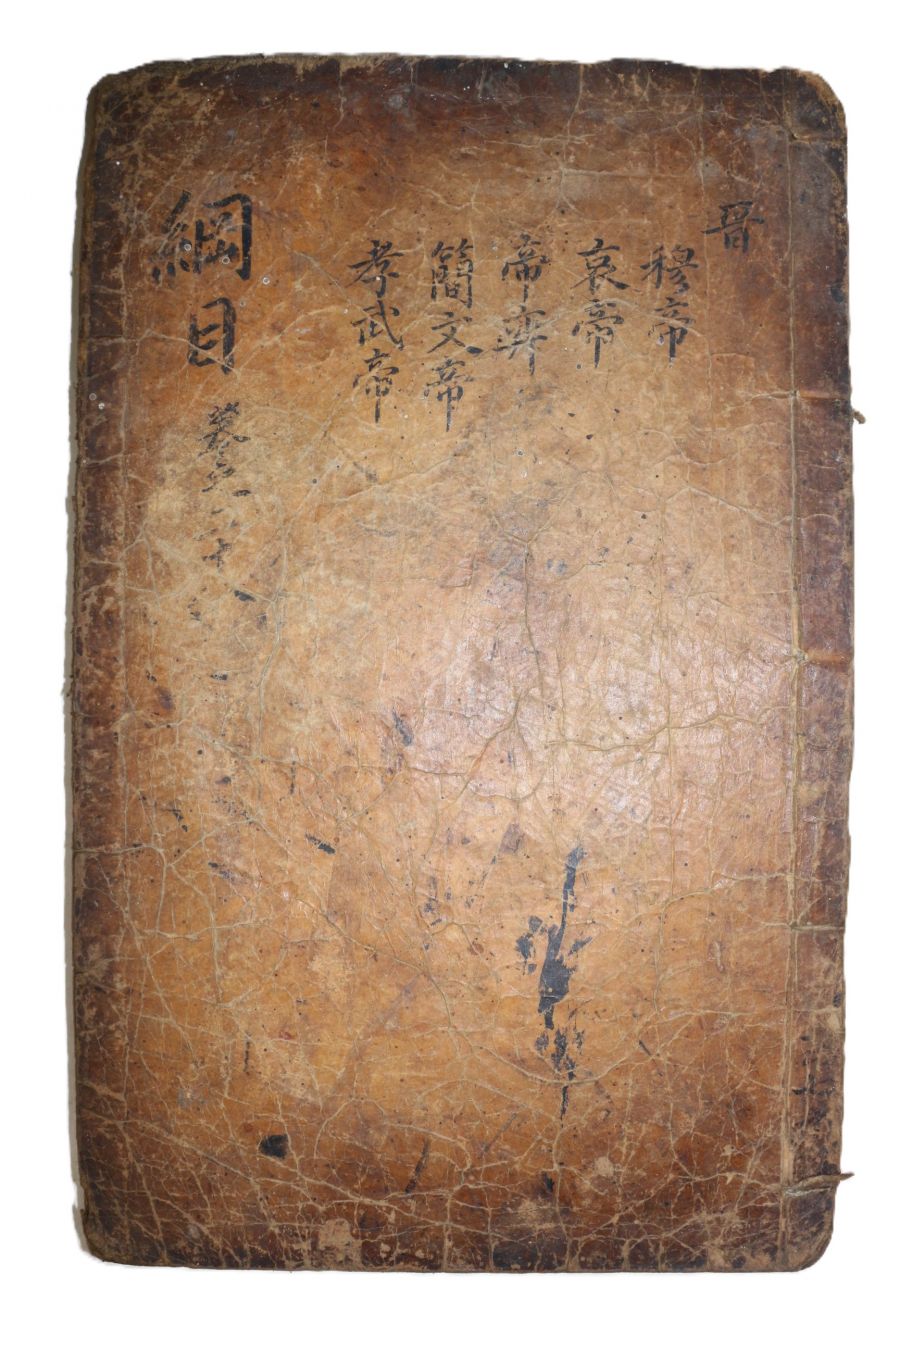 晋
穆帝
哀帝
帝奕
簡文帝
孝武帝
綱目
卷之